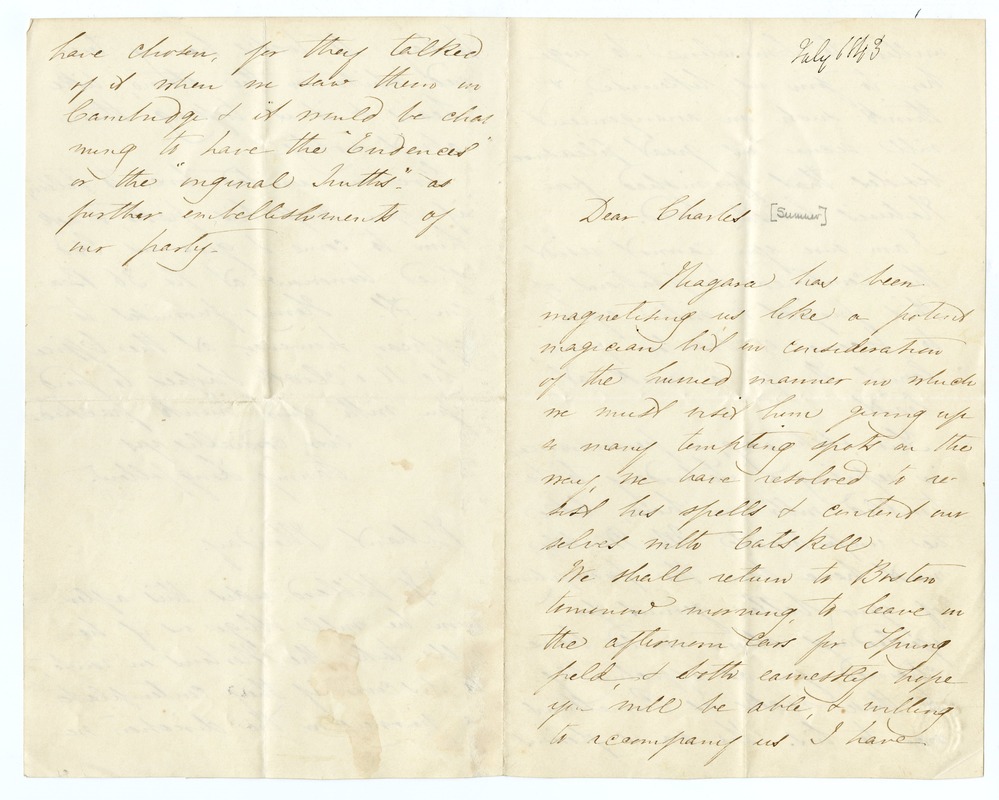 have chosen, for they talked
of it when we saw them in
Cambridge & it would be char
ming to have the "Evidences"
or the "original Truths" - as
further embellishments of
our party -
July 1843
Dear Charles [Sumner]
Niagara has been
magnetising us like a potent
magician but in consideration
of the hurried manner in which
we must visit him giving up
so many tempting spots on the
way, we have resolved to re-
sist his spells & content our
selves with Catskill
We shall return to Boston
tomorrow morning, to leave in
the afternoon Cars for Spring
field, & both earnestly hope
you will be able, & willing
to accompany us I have